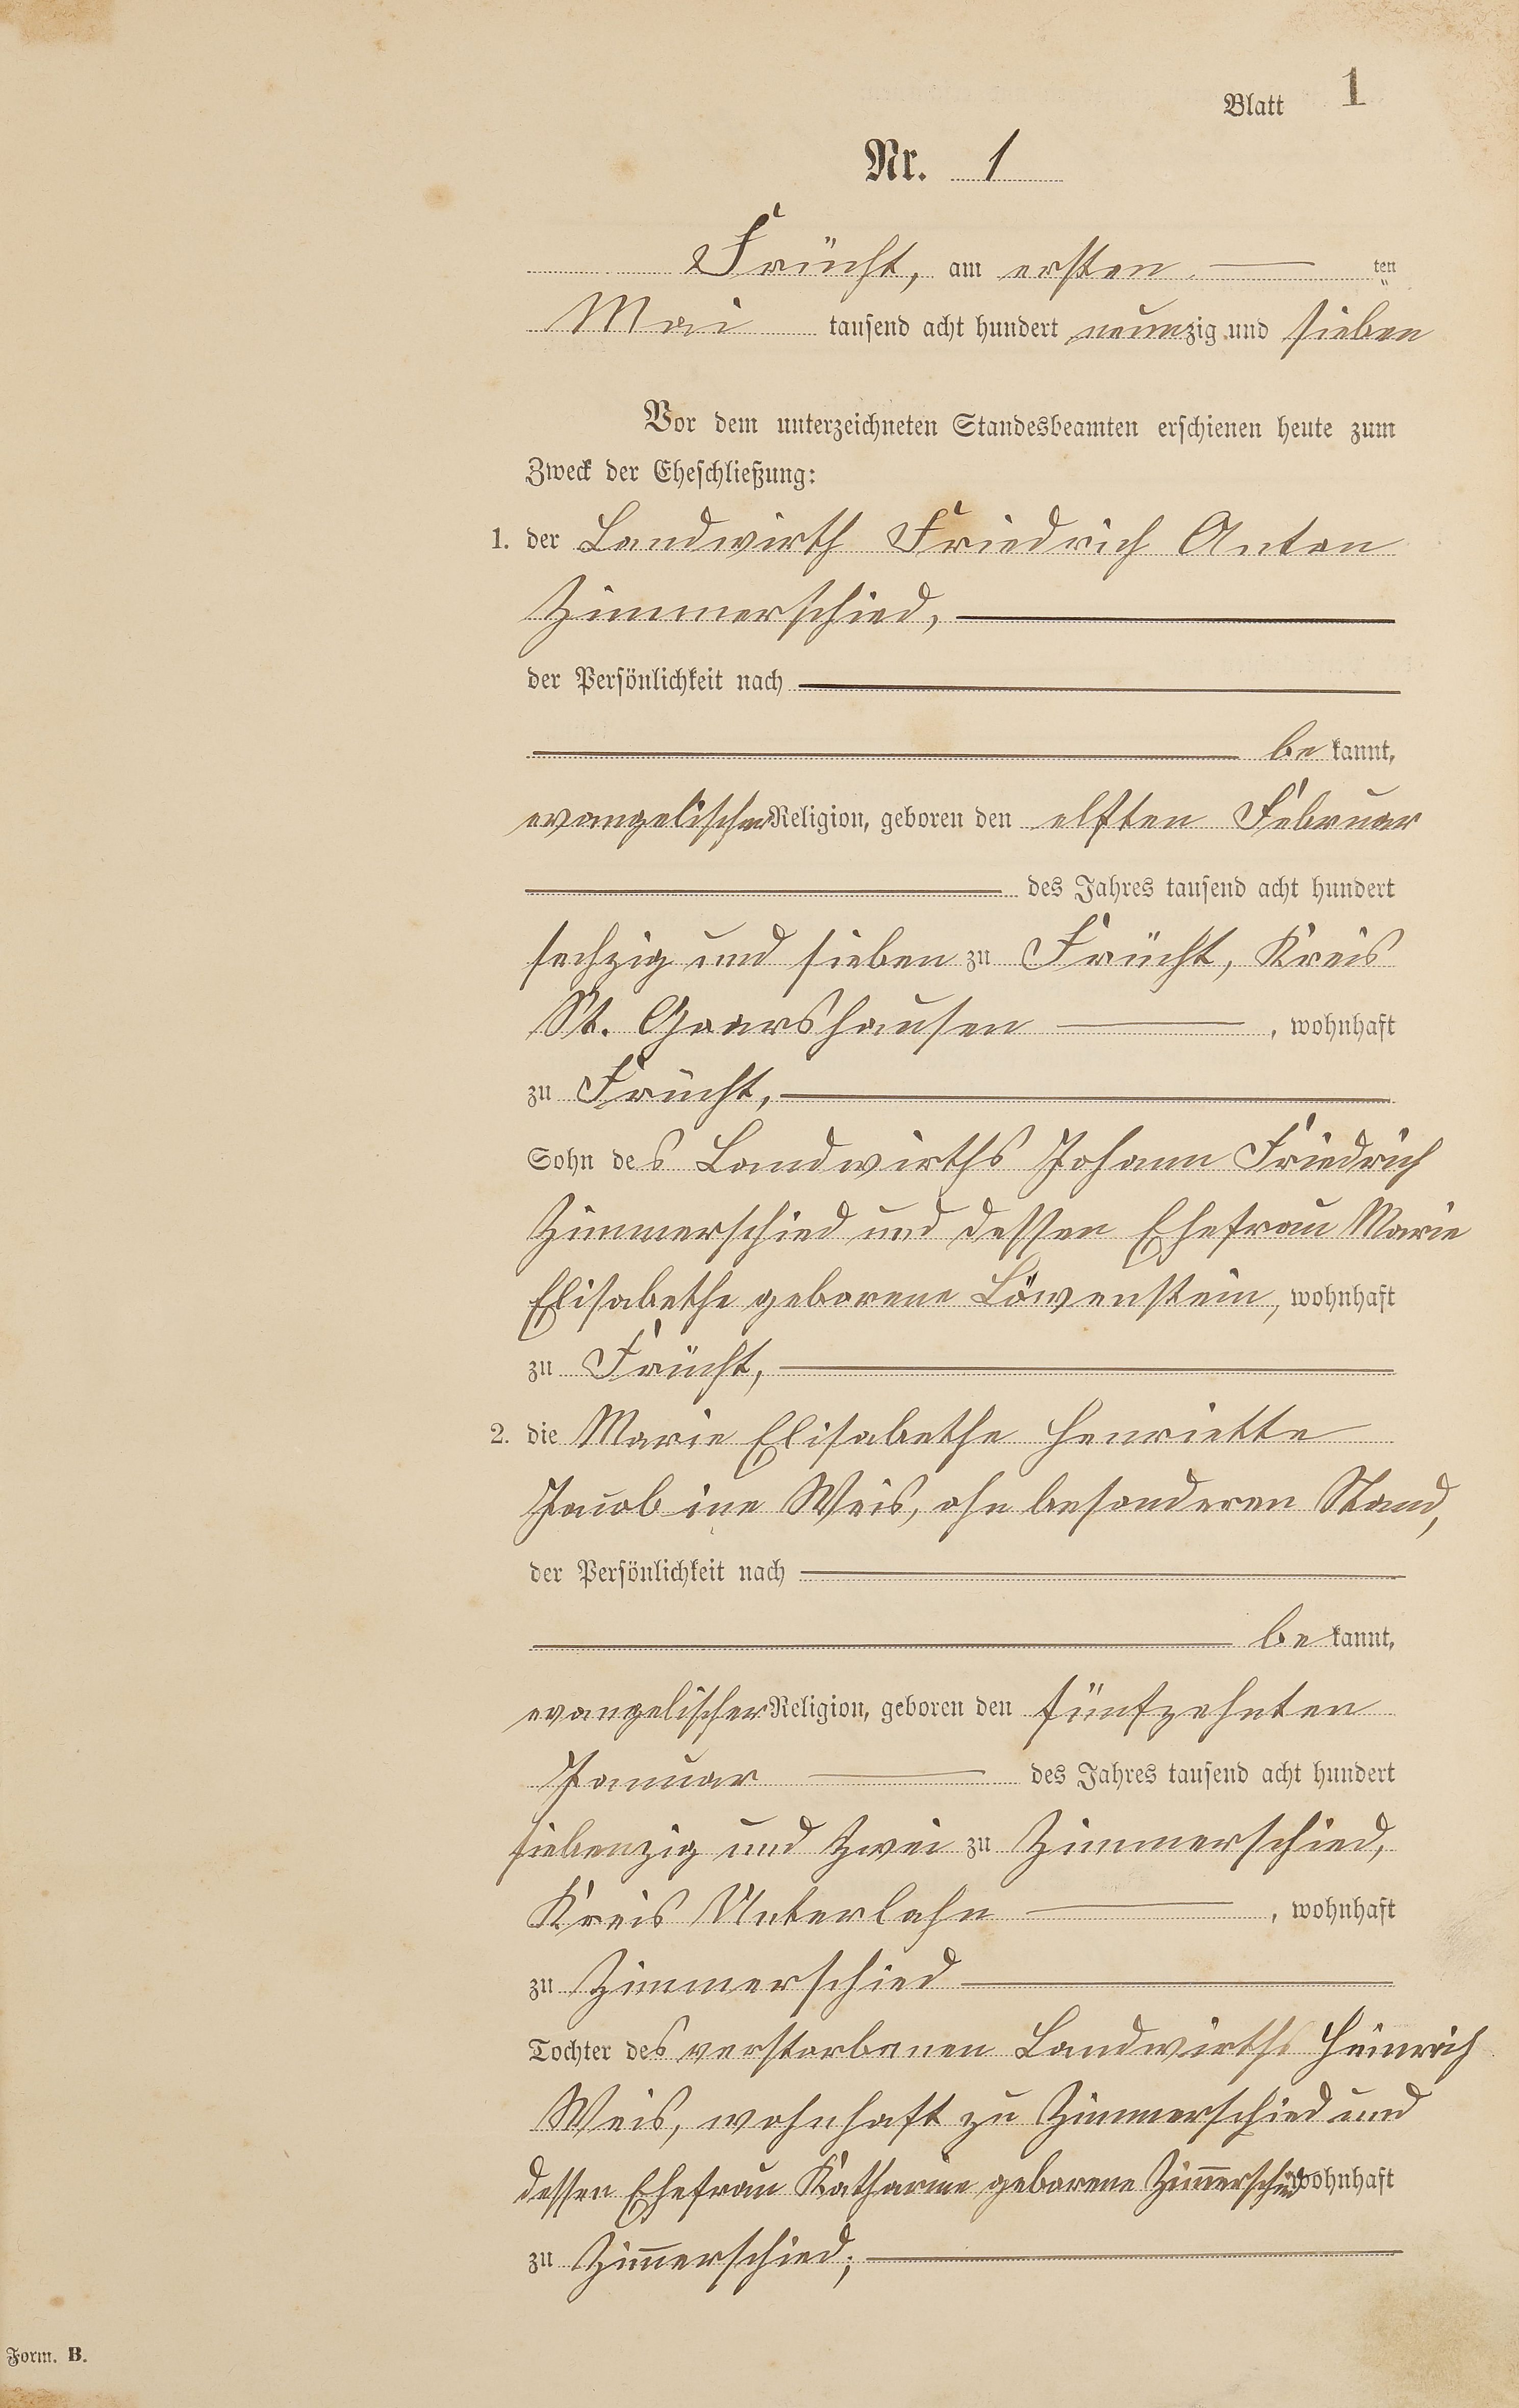 Blatt 1
Nr. 1
Frücht, am ersten ten
Mai tausend acht hundert neunzig und sieben
Vor dem unterzeichneten Standesbeamten erschienen heute zum
Zweck der Eheschließung:
1. der Landwirth Friedrich Anton
Zimmerschied,
der Persönlichkeit nach
bekannt,
evangelischer Religion, geboren den elften Februar
des Jahres tausend acht hundert
sechzig und sieben zu Frücht, Kreis
St. Goarshausen, wohnhaft
zu Frücht,
Sohn des Landwirths Johann Friedrich
Zimmerschied und dessen Ehefrau Marie
Elisabethe geborene Löwenstein, wohnhaft
zu Frücht,
2. die Marie Elisabethe Henriette
Jacobine Weis, ohne besonderen Stand,
der Persönlichkeit nach
bekannt,
evangelischer Religion, geboren den fünfzehnten
Januar des Jahres tausend acht hundert
siebenzig und zwei zu Zimmerschied,
Kreis Unterlahn, wohnhaft
zu Zimmerschied
Tochter des verstorbenen Landwirths Heinrich
Weis, wohnhaft zu Zimmerschied und
dessen Ehefrau Katharine geborene Zim̄erschied wohnhaft
zu Zim̄erschied;
Form. B.